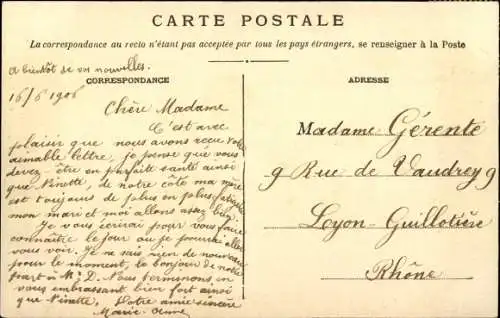 CARTE POSTALE
La correspondance au recto n'étant pas acceptée par tous les pays étrangers, se renseigner à la Poste
A bientôt de vos nouvelles.
CORRESPONDANCE
ADRESSE
16/6 1906
Chère Madame
C'est avec
plaisir que nous avons reçu votre
aimable lettre, je pense que vous
devez être en parfaite santé ainsi
que Ninette, de notre côté ma mère
est toujours de plus en plus fatiguée
mon mari et moi allons assez bien.
Je vous écrirai pour vous faire
connaître le jour où je pourrai aller
vous voir. Je ne sais rien de nouveau
pour le moment, le bonjour de notre
part à Mr D. Nous terminons en
vous embrassant bien fort ainsi
que Ninette. Votre amie sincère
Marie-Anne
Madame Gérente
9 Rue de Vaudrey 9
Lyon-Guillotière
Rhône